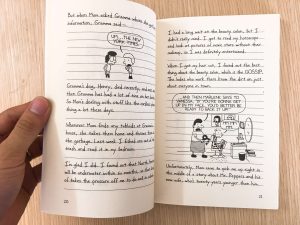 But when Mom asked Gramma where she got her
information, Gramma said—
UM... THE NEW
YORK TIMES?
Gramma's dog, Henry, died recently, and ever
since then Gramma has had a lot of time on her hands.
So Mom's dealing with stuff like the
thing a lot these days.
Whenever Mom finds any tabloids at Gramma's
house, she takes them home and throws them in
the garbage. Last week I fished one out of the
trash and read it in my bedroom.
I'm glad I did. I found out that North America
will be underwater within six months, so that kind
of takes the pressure off me to do well in school.
20
I had a long wait in the beauty salon, but I
didn't really mind. I got to read my horoscope
and look at pictures of movie stars without their
makeup, so I was definitely entertained.
When I got my hair cut, I found out the best
thing about the beauty salon, which is the GOSSIP.
The ladies who work there know the dirt on just
about everyone in town.
AND THEN MARLENE SAYS TO
VANESSA, "IF YOU'RE GONNA GET
UP IN MY FACE, YOU'D BETTER BE
READY TO BACK IT UP!"
Unfortunately, Mom came to pick me up right in
the middle of a story about Mr. Peppers and his
new wife, who's twenty years younger than him.
21